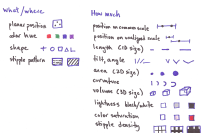 What/Where
planar position
color hue
shape
stipple pattern
How much
position on common scale
position on unaligned scale
length (1D size)
tilt, angle
area (2D size)
curvature
volume (3D size)
lightness black/white
color saturation
stipple density